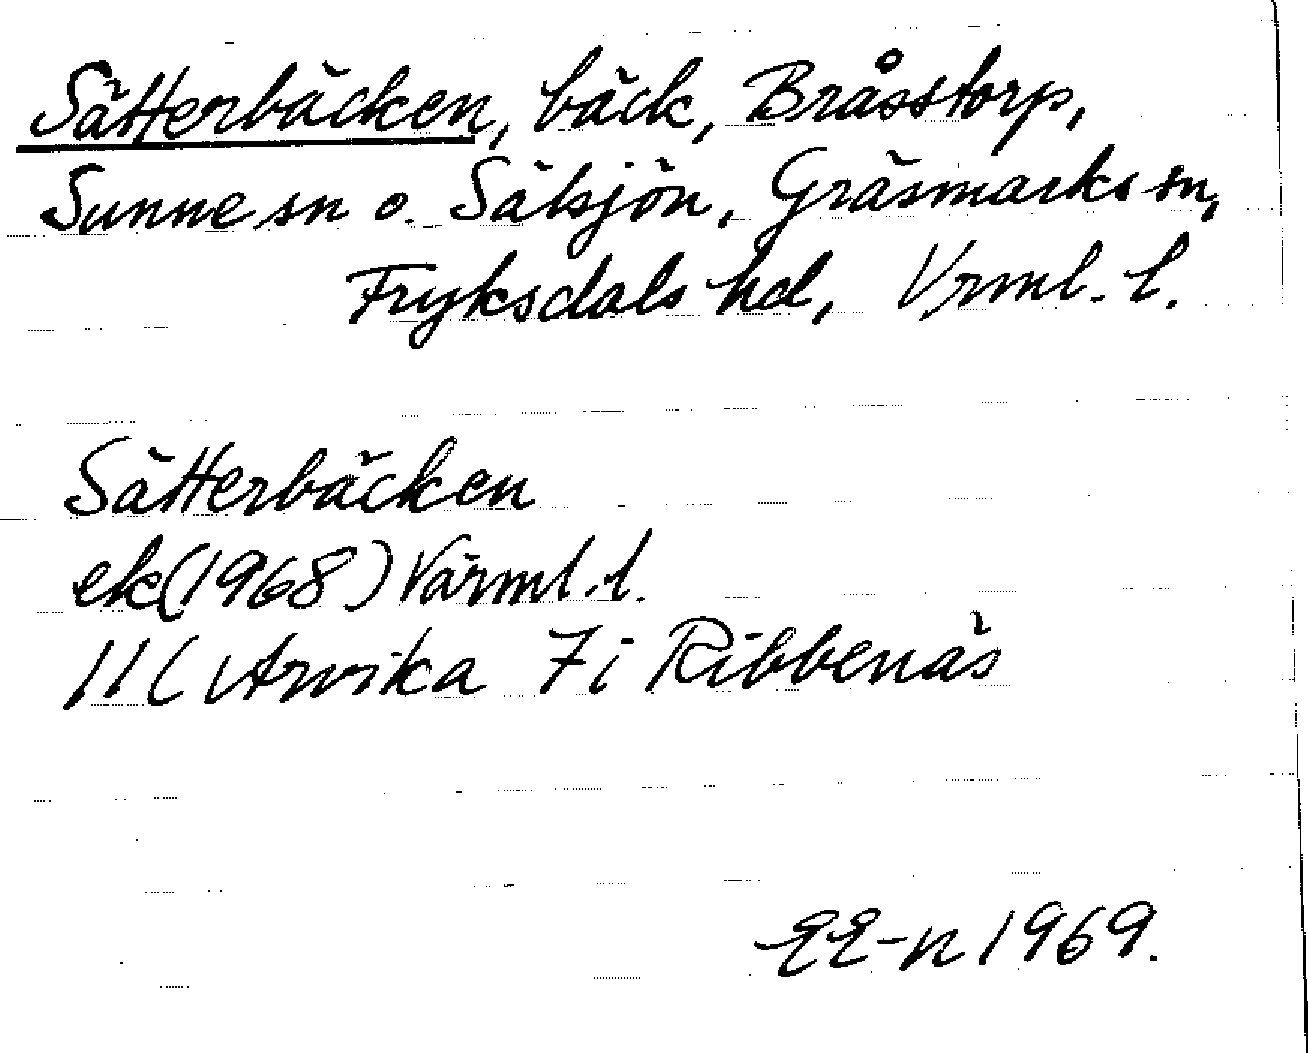 Sätterbäcken, bäck, Bråsstorp,
Sunne sn o. Sälsjön, Gräsmarks sn,
Fryksdals hd, Vrml. l.
Sätterbäcken
ek(1968) Värml. l.
11C Arvika 7i Ribbenäs
EE-n 1969.